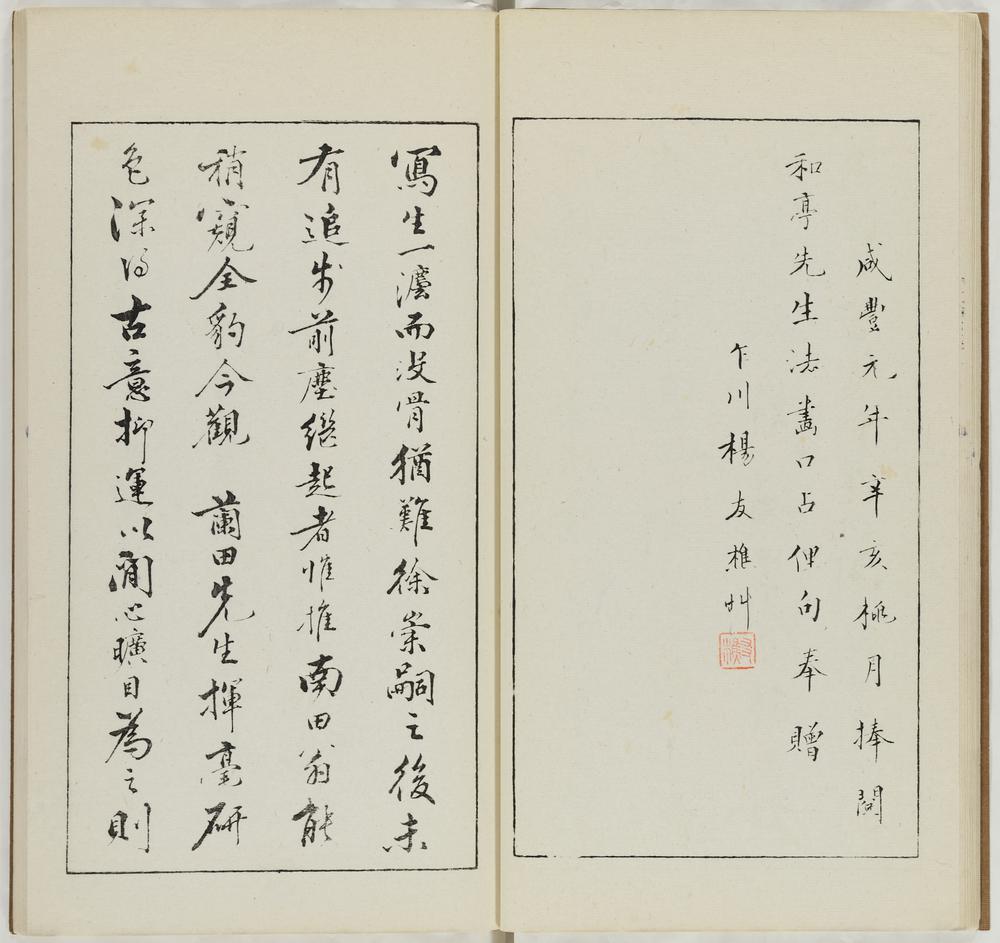 咸豐元年辛亥桃月捧閱
和亭先生法畫口占俚句奉贈
乍川楊友樵艸
寫生一灋而沒骨猶難徐崇嗣之後未
有追步前塵繼起者惟推南田翁能
稍窺全豹今觀 蘭田先生揮毫研
色深得古意抑運以閒心曠目為之則